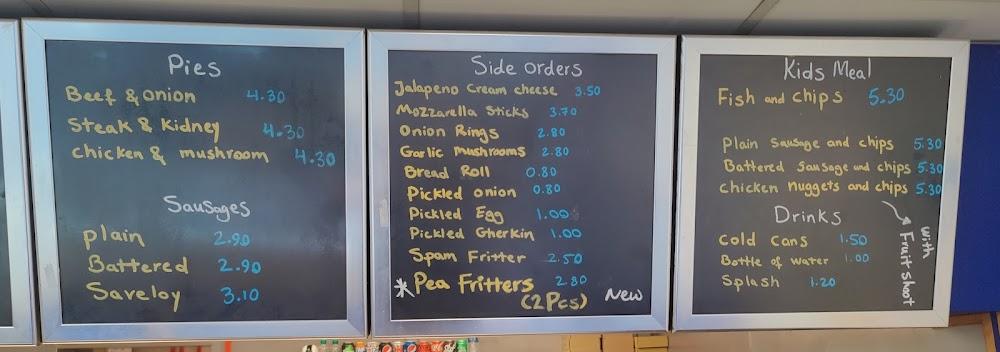 Pies
Beef & onion 4.30
Steak & Kidney 4.30
chicken & mushroom 4.30
Sausages
plain 2.90
Battered 2.90
Saveloy 3.10
Side orders
Jalapeno Cream cheese 3.50
Mozzarella Sticks 3.70
Onion Rings 2.80
Garlic mushrooms 2.80
Bread Roll 0.80
Pickled onion 0.80
Pickled Egg 1.00
Pickled Gherkin 1.00
Spam Fritter 2.50
* Pea Fritters 2.80
(2Pcs) New
Kids Meal
Fish and chips 5.30
Plain Sausage and chips 5.30
Battered Sausage and chips 5.30
chicken nuggets and chips 5.30
with
Fruit shoot
Drinks
Cold cans 1.50
Bottle of water 1.00
Splash 1.20